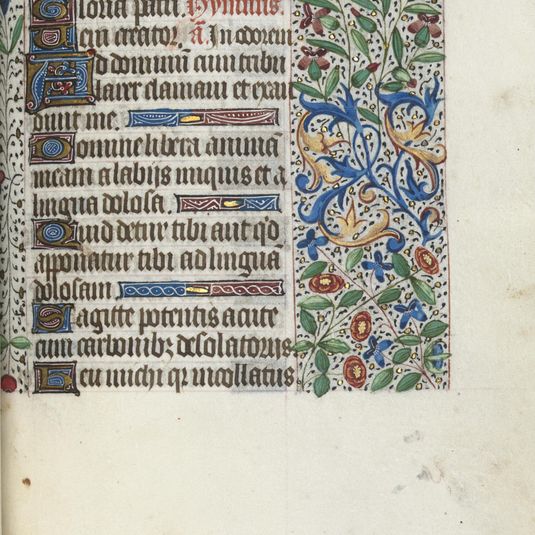 Gloria patri Hymnus
Veni creator ã. In odorem
Ad dominum cum tribu
larer clamaui et exau
diuit me.
Domine libera animã
meam a labijs iniquis et a
lingua dolosa.
Quid detur tibi aut qd
apponatur tibi ad linguã
dolosam
Sagitte potentis acute
cum carbonibꝫ desolatoriis
Heu michi qꝛ incollatus